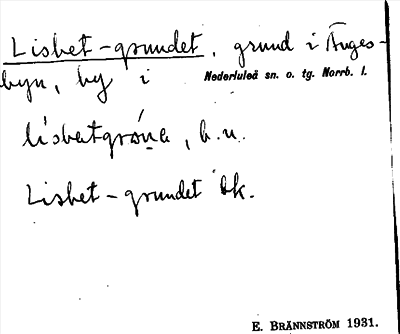 Lisbet-grundet, grund i Änges-
byn, by i Nederluleå sn. o. tg. Norrb. l.
lisbatgróna, b.u.
Lisbet-grundet Ek.
E. BRÄNNSTRÖM 1931.